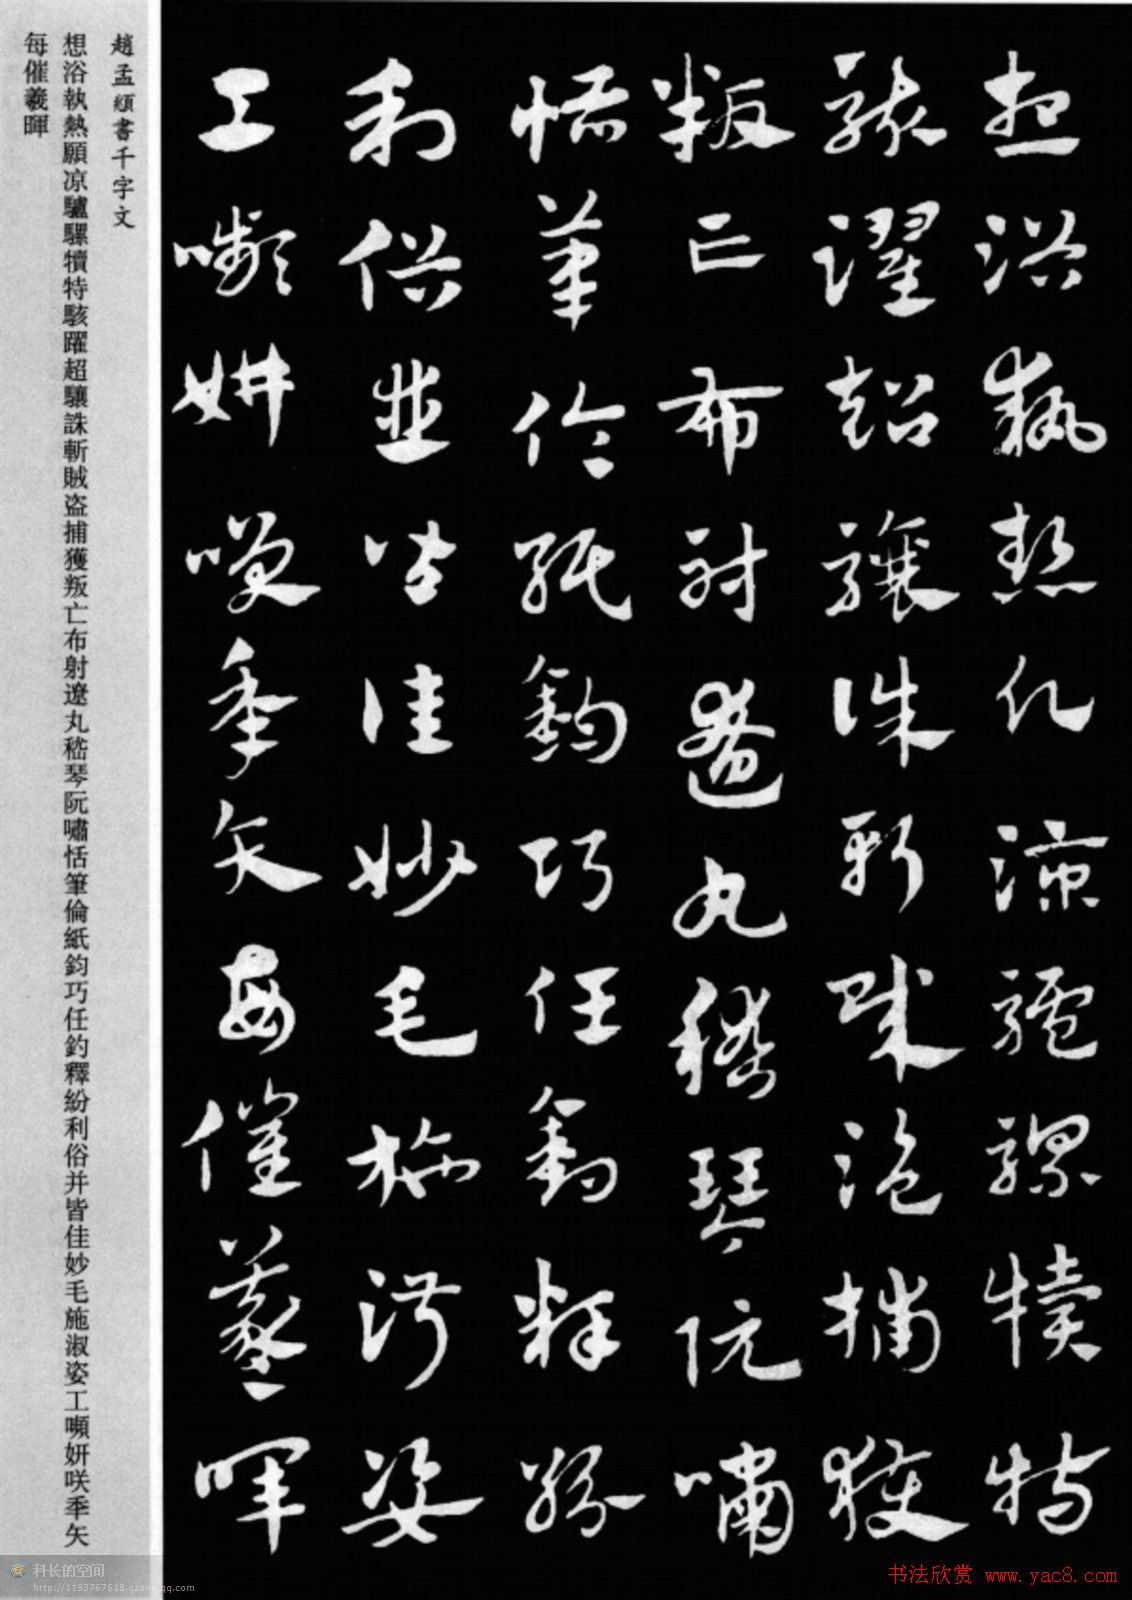 想浴執熱願凉驢騾犢特
駭躍超驤誅斬賊盗捕獲
叛亡布射遼丸嵇琴阮嘯
恬筆倫紙鈞巧任釣釋紛
利俗並皆佳妙毛施淑姿
工嚬妍咲秊矢每催羲暉
趙孟頫書千字文
想浴執熱願凉驢騾犢特駭躍超驤誅斬賊盗捕獲叛亡布射遼丸嵇琴阮嘯恬筆倫紙鈞巧任釣釋紛利俗并皆佳妙毛施淑姿工嚬妍咲秊矢
每催羲暉
科长的空间
http://1193767618.qzone.qq.com
书法欣赏 www.yac8.com